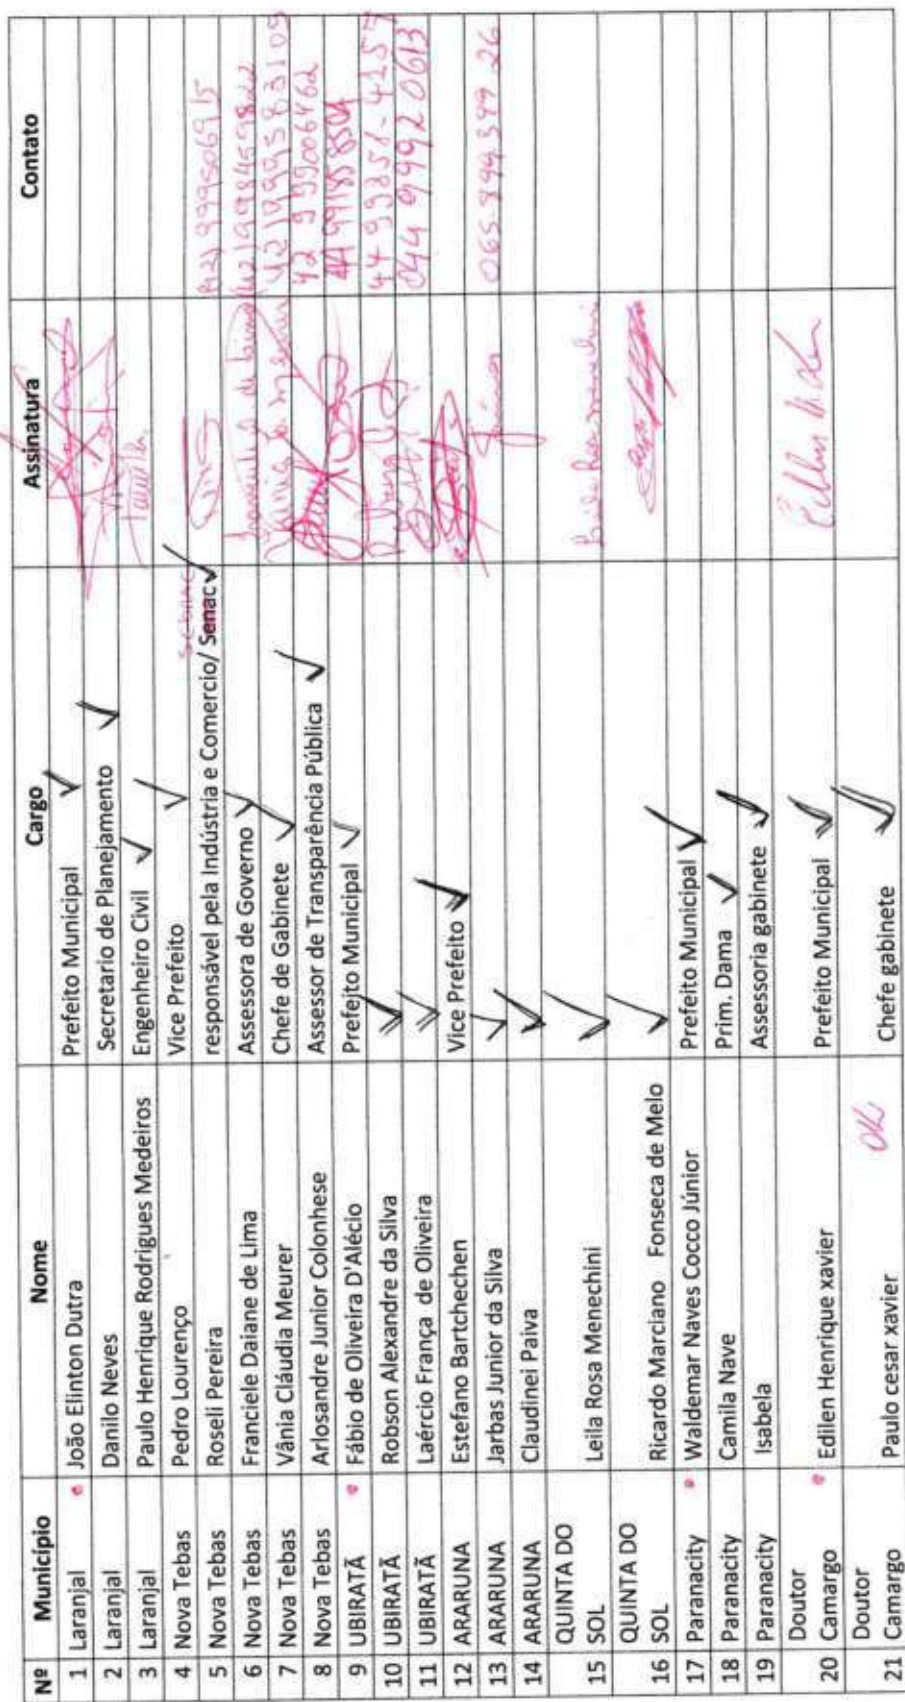 Nº Município Nome Cargo Assinatura Contato
1 Laranjal João Elinton Dutra Prefeito Municipal
2 Laranjal Danilo Neves Secretario de Planejamento
3 Laranjal Paulo Henrique Rodrigues Medeiros Engenheiro Civil
4 Nova Tebas Pedro Lourenço Vice Prefeito
5 Nova Tebas Roseli Pereira responsável pela Indústria e Comercio/ Senac
6 Nova Tebas Franciele Daiane de Lima Assessora de Governo
7 Nova Tebas Vânia Cláudia Meurer Chefe de Gabinete
8 Nova Tebas Arlosandre Junior Colonhese Assessor de Transparência Pública
9 UBIRATÃ Fábio de Oliveira D'Alécio Prefejto Municipal
10 UBIRATÃ Robson Alexandre da Silva
11 UBIRATÃ Laércio França de Oliveira 044 99920613
12 ARARUNA Estefano Bartchechen Vice Prefeito
13 ARARUNA Jarbas Junior da Silva
14 ARARUNA Claudinei Paiva
QUINTA DO
15 SOL Leila Rosa Menechini
QUINTA DO
16 SOL Ricardo Marciano Fonseca de Melo
17 Paranacity Waldemar Naves Cocco Júnior Prefeito Municipal
18 Paranacity Camila Nave Prim. Dama
19 Paranacity Isabela Assessoria gabinete
Doutor
20 Camargo Edilen Henrique xavier Prefeito Municipal
Doutor
21 Camargo Paulo cesar xavier OK Chefe gabinete